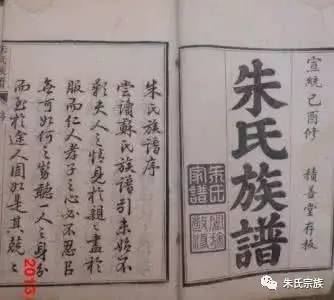 宣統己酉修
積善堂存板
朱氏族譜
朱氏
家譜
朱氏族譜序
嘗讀蘇氏族譜引未始不
歎夫人之情見於親之盡於
服而仁人孝子之心必不忍
無可如何之勢聽人之身分
而至於途人固如是其兢兢
2015
朱氏宗族